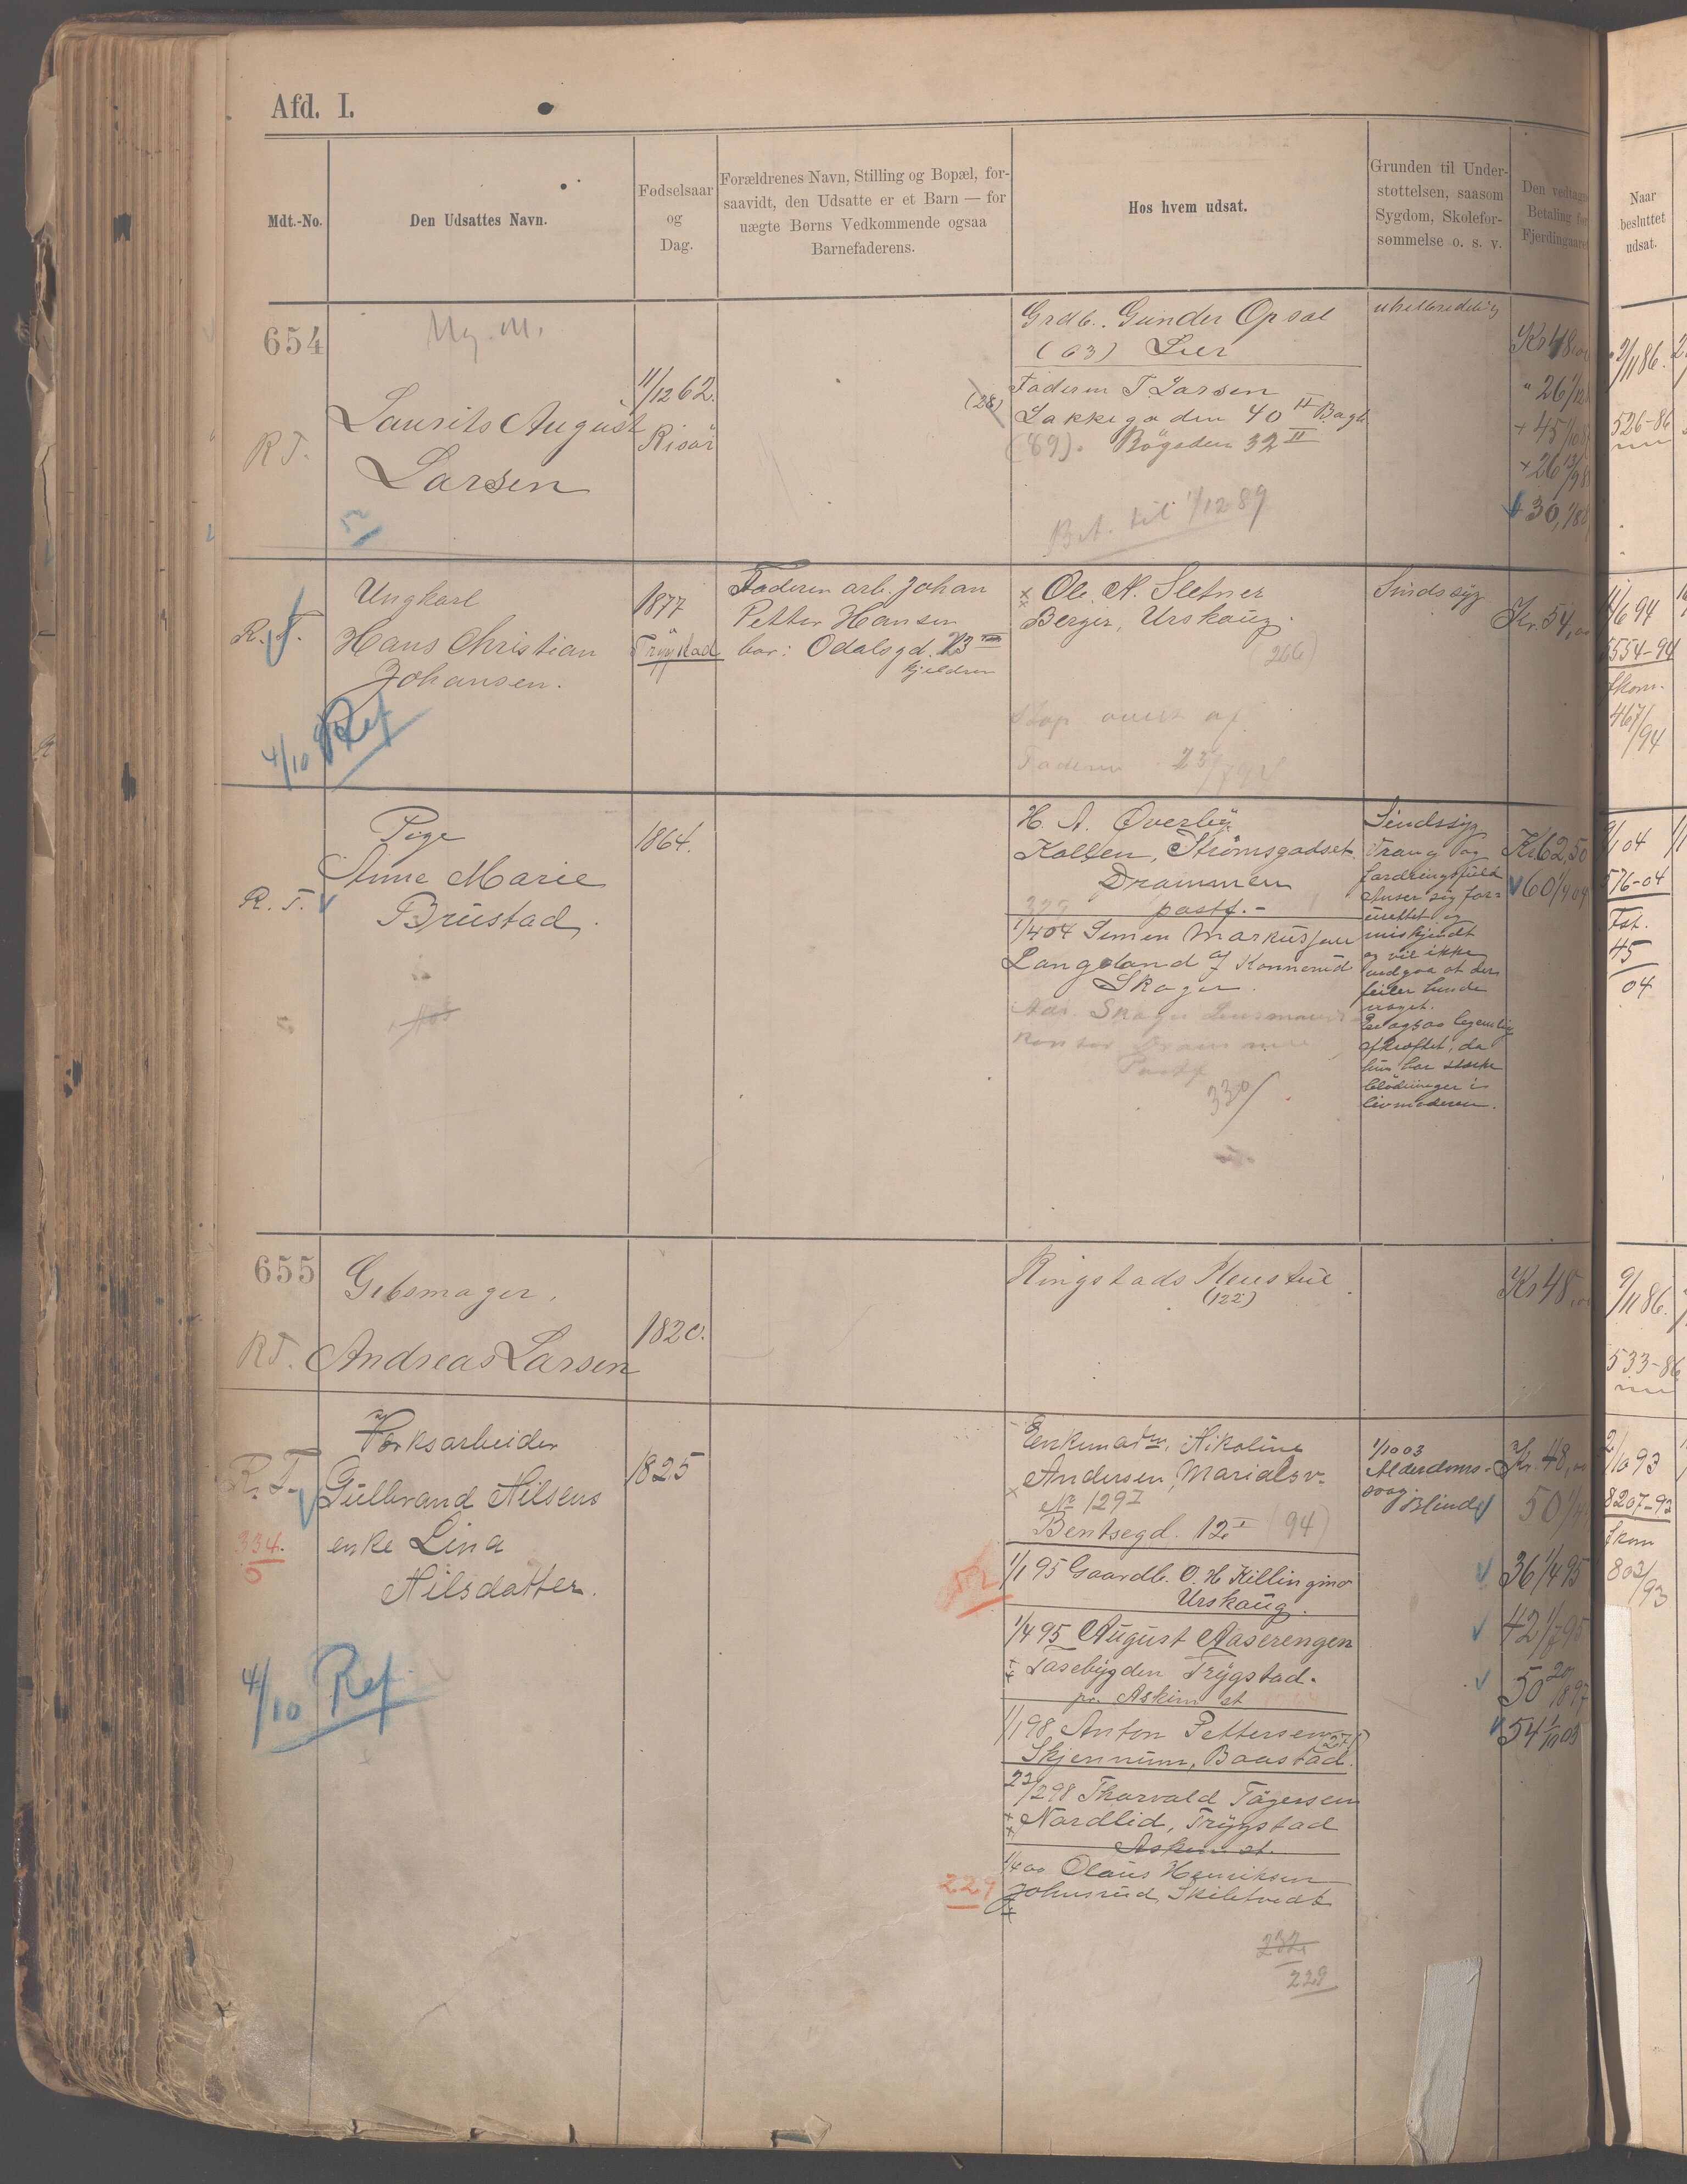 Afd. I.
Mdt.-No.
Den Udsattes Navn.
Fødselsaar
og
Dag.
Forældrenes Navn, Stilling og Bopæl, for-
saavidt, den Udsatte er et Barn — for
uægte Børns Vedkommende ogsaa
Barnefaderens.
Hos hvem udsat.
Grunden til Under-
støttelsen, saasom
Sygdom, Skolefor-
sømmelse o. s. v.
Den vedtagne
Betaling for
Fjerdingaaret
Naar
besluttet
udsat.
654
Ug. M.
R T.
Laurits August
Larsen
52
11/12 62.
Risör
Grdb. Gunder Opsal
(63) Lier
(28)
Faderen T Larsen
Lakkegaden 40 II Bagb
(89). Bögaden 32 II
Bet. til 1/12 89
uhelbredelig
Kr 48,00
" 26 1/12
+ 45 1/10
+ 26
+ 30, 1/88
2/11 86.
526-86
R. T.
Ungkarl
Hans Christian
Johansen.
4/10 Ref
1877
Trygstad
Faderen arb. Johan
Petter Hansen
bor: Odalsgd. 13 III
kjelderen
Ole N. Sletner
Berger, Urskaug.
(266)
Faderen
Sindssyg
Kr. 54,00
11/6 94
5554-94
fkom.
467/94
R. T.
Pige
Anne Marie
Brustad
1864.
H. A. Överby
Kolben, Strömsgodset
Drammen
postf. -
329
1/4 04 Simen Markussen
Langeland af Konnerud
Skoger.
Adr. Skoger Lensmands
kontor Drammen
Postf
330/
Sindssyg
Trang og
fordringsfuld
Anser sig for-
urettet og
miskjendt
og vil ikke
indgaa at der
feiler hende
noget.
Er ogsaa legemlig
afkræftet, da
hun har stærke
blödninger i
livmoderen.
Kr 62,50
60 1/4 04
9/1 04
576-04
Fat.
45
04
655
R T.
Gibsmager.
Andreas Larsen
1820.
Ringstads Pleiestue
(122)
Kr 48,00
9/11 86.
533-86
R. T.
334.
0
Værksarbeider
Gulbrand Nilsens
enke Lina
Nilsdatter.
4/10 Ref.
1825
Enkemadm. Nikoline
Andersen, Maridalsv.
No 129 I
Bentsegd. 12 I (94)
52
1/1 95 Gaardb. O. H Killingmo
Urskaug.
1/4 95 August Aaserengen
Lasebygden Trygstad.
pr. Askim st
1/1 98 Anton Pettersen
Skjennum, Baastad.
22/2 98 Thorvald Tögersen
Nordlid, Trygstad
Askim st.
1/4 00 Olaus Henriksen
229
Johnsrud, Skiletvedt
232
229
1/10 03
Alderdoms-
svag.
Blind
Kr. 48,00
50 1/4
36 1/4 95
42 1/7 95
50 20/10 97
54 1/10 03
2/10 93
8207-93
fkom
803/93